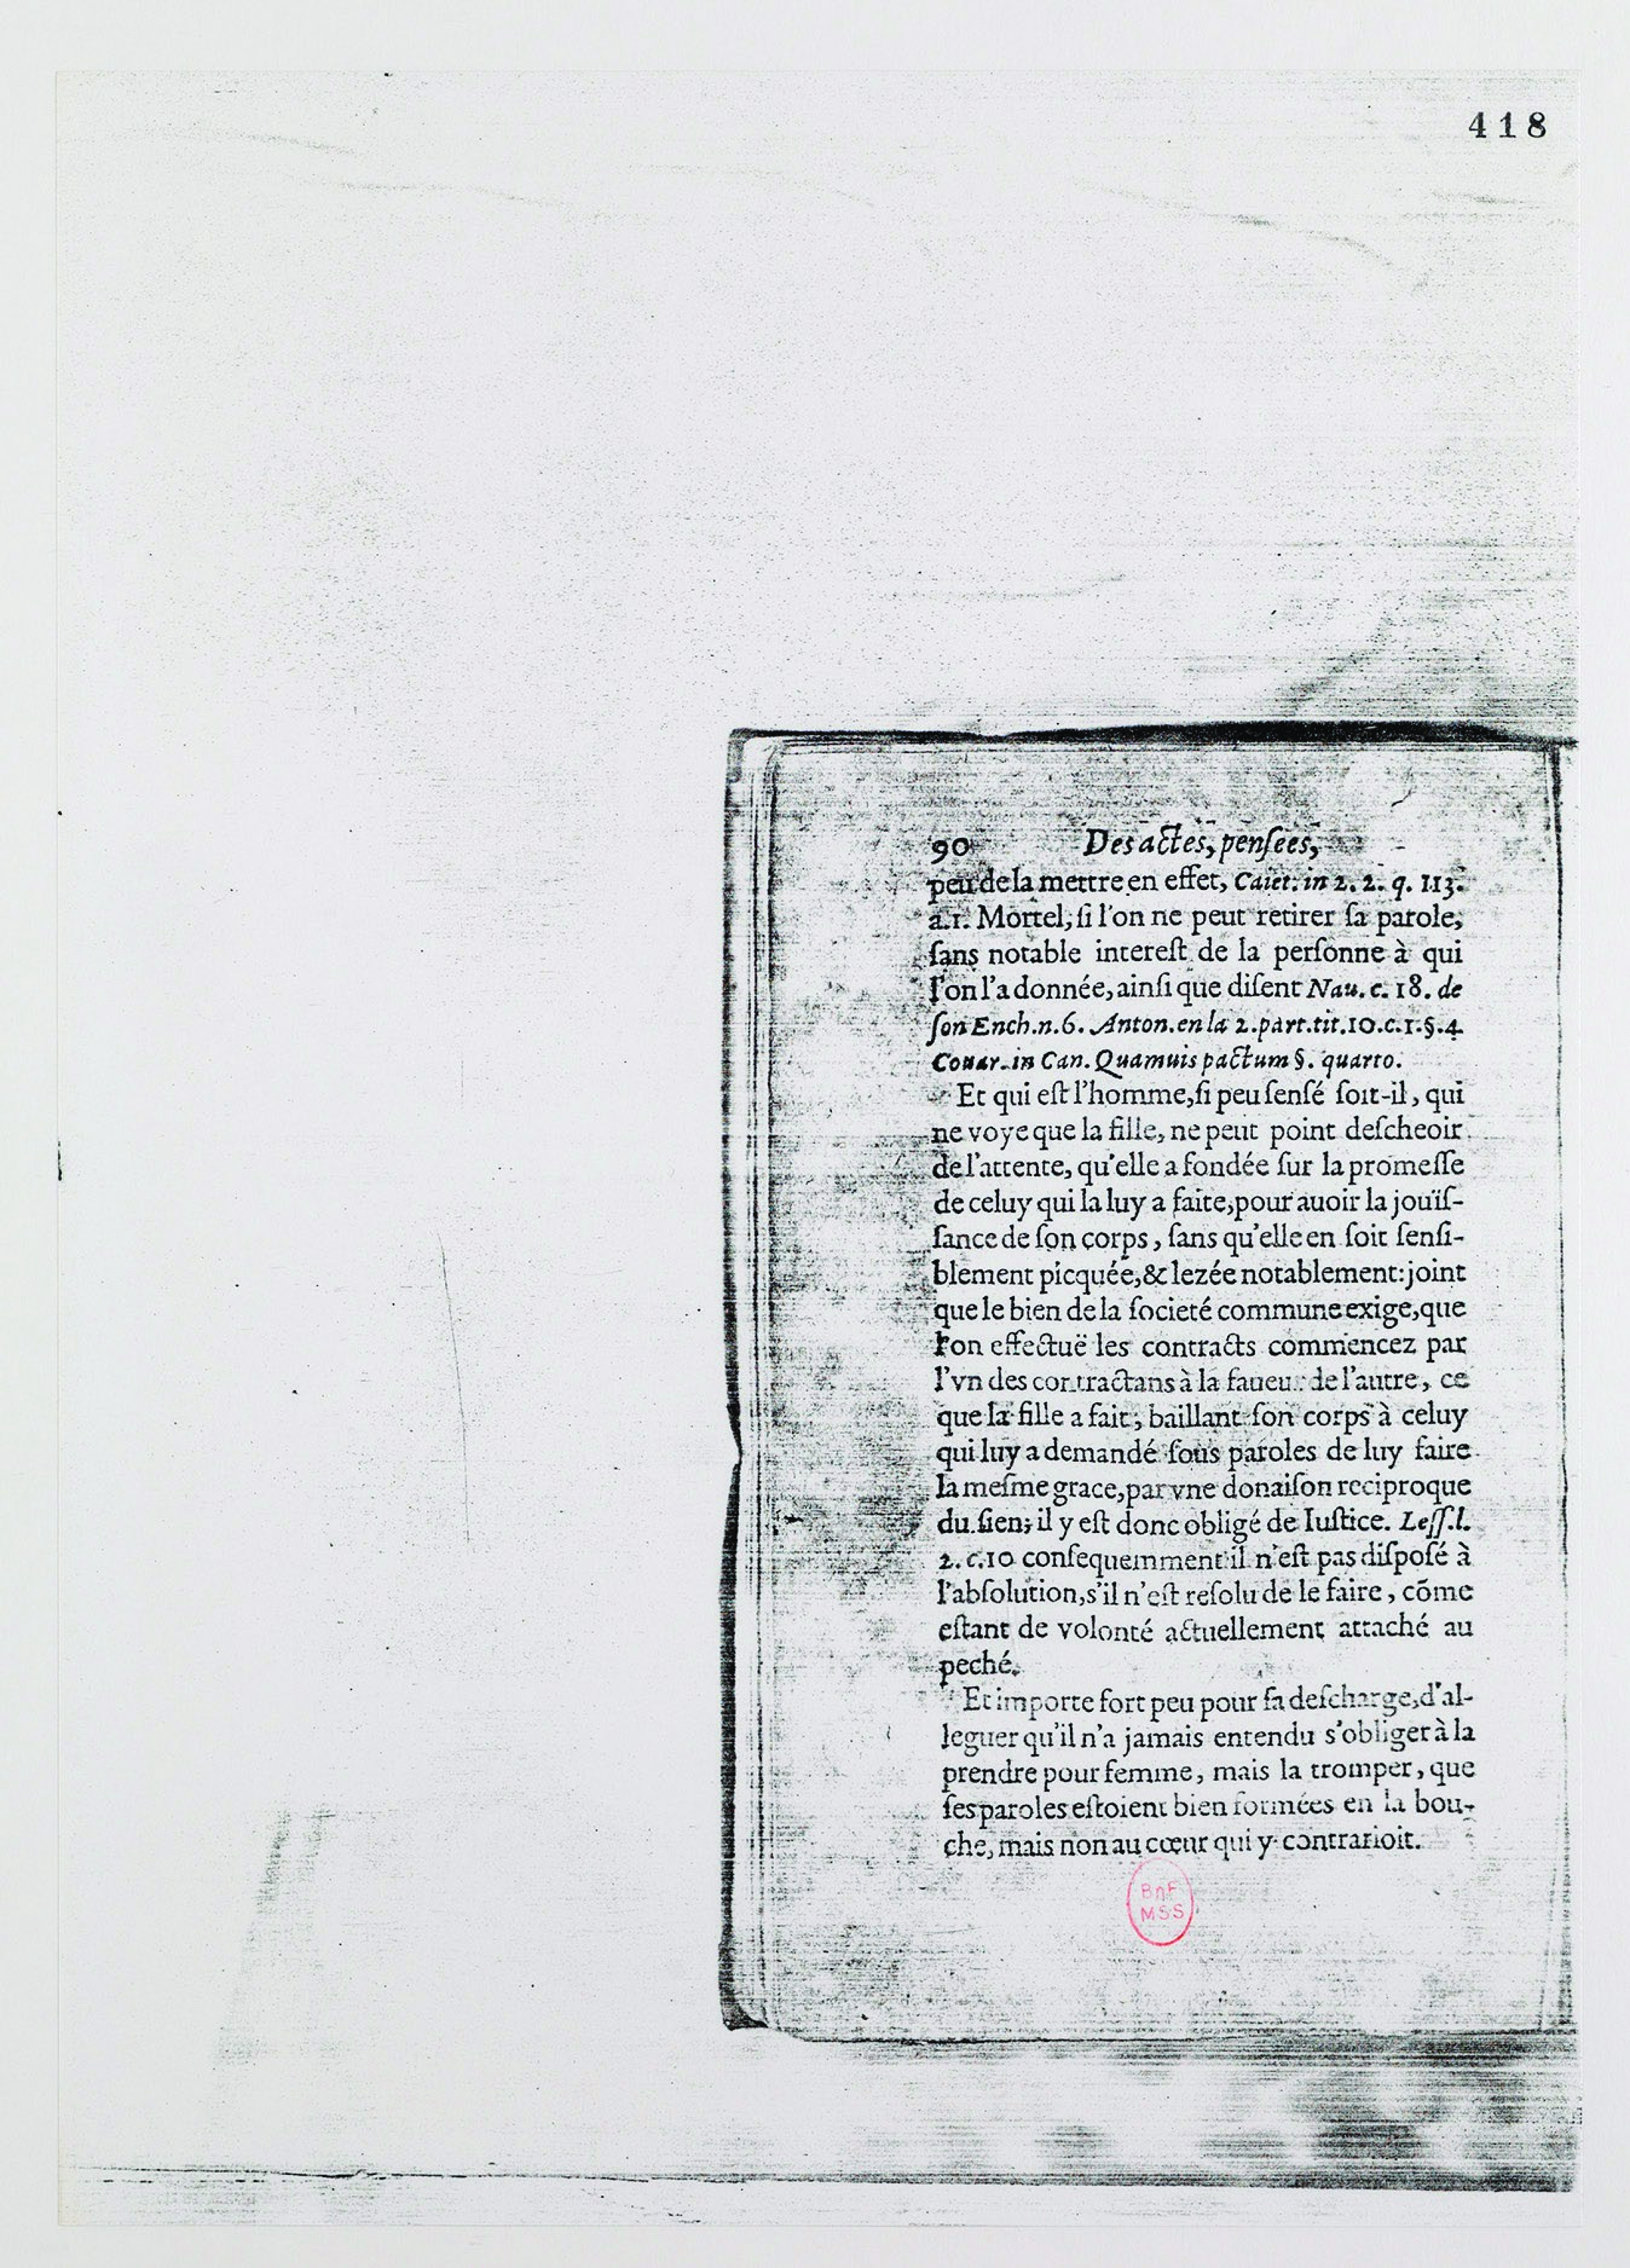 418
90 Des actes, penſees,
peu de la mettre en effet, Caiet. in 2. 2. q. 113.
a.1. Mortel, ſi l'on ne peut retirer ſa parole,
ſans notable intereſt de la perſonne à qui
l'on l'a donnée, ainſi que diſent Nau. c. 18. de
ſon Ench. n. 6. Anton. en la 2. part. tit. 10. c. 1. §. 4
Couar. in Can. Quamuis pactum §. quarto.
Et qui eſt l'homme, ſi peu ſenſé ſoit-il, qui
ne voye que la fille, ne peut point deſcheoir
de l'attente, qu'elle a fondée ſur la promeſſe
de celuy qui la luy a faite, pour auoir la jouïſ-
ſance de ſon corps, ſans qu'elle en ſoit ſenſi-
blement picquée, & lezée notablement: joint
que le bien de la ſocieté commune exige, que
l'on effectuë les contracts commencez par
l'vn des contractans à la faueur de l'autre, ce
que la fille a fait, baillant ſon corps à celuy
qui luy a demandé ſous paroles de luy faire
la meſme grace, par vne donaiſon reciproque
du ſien; il y eſt donc obligé de Iuſtice. Leſſ. l.
2. c. 10 conſequemment il n'eſt pas diſpoſé à
l'abſolution, s'il n'eſt reſolu de le faire, cōme
eſtant de volonté actuellement attaché au
peché.
Et importe fort peu pour ſa deſcharge, d'al-
leguer qu'il n'a jamais entendu s'obliger à la
prendre pour femme, mais la tromper, que
ſes paroles eſtoient bien formées en la bou-
che, mais non au cœur qui y contrarioit.
BnF
MSS